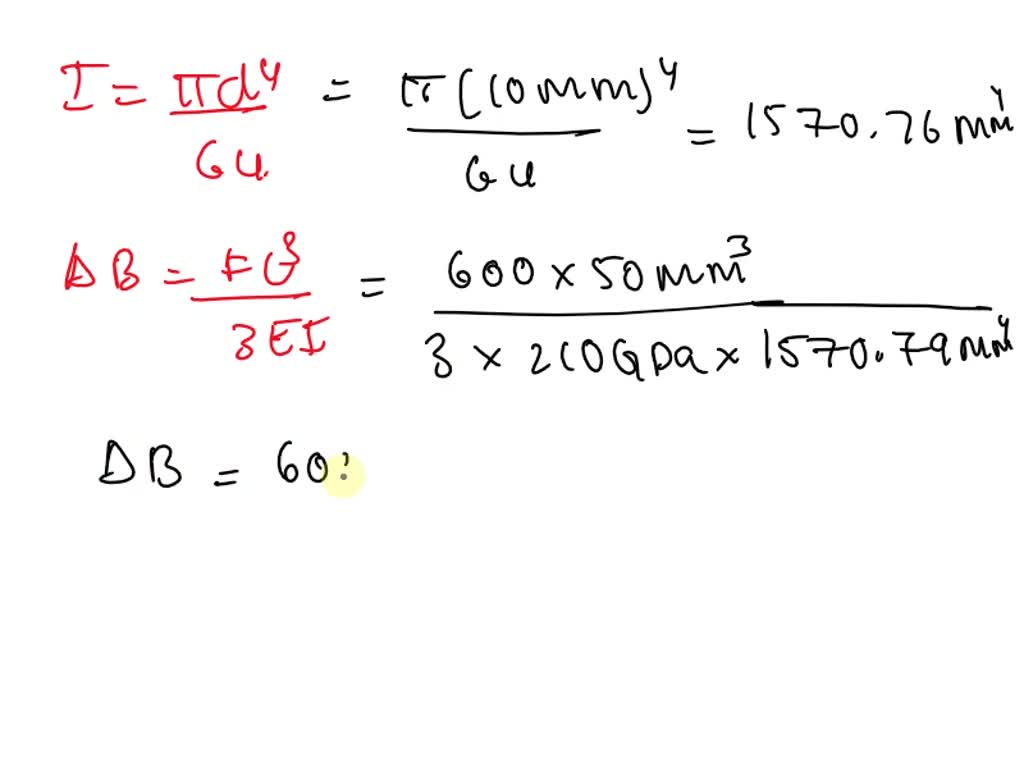 I = πd⁴/64 = π(10mm)⁴/64 = 1570.76 mm⁴
ΔB = Fl³/3EI = 600 × 50mm³/3 × 210GPa × 1570.79mm⁴
ΔB = 60